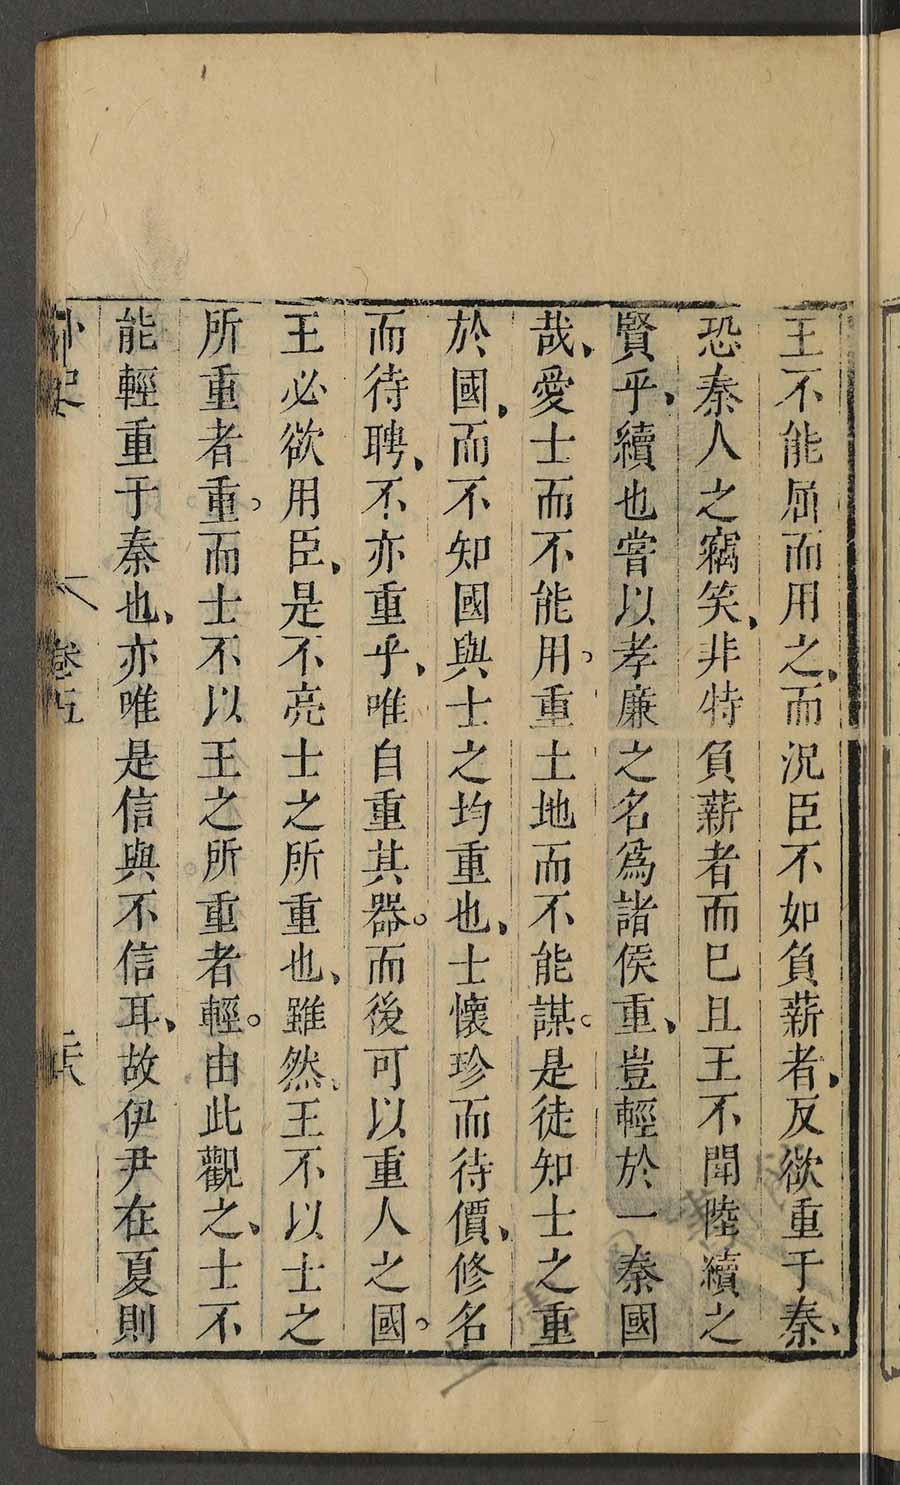 王不能屈而用之、而況臣不如負薪者、反欲重于秦、
恐秦人之竊笑、非特負薪者而已且王不聞陸續之
賢乎、續也嘗以孝廉之名爲諸侯重、豈輕於一秦國
哉、愛士而不能用。重土地而不能謀。是徒知士之重
於國、而不知國與士之均重也、士懷珍而待價、修名
而待聘、不亦重乎、唯自重其器。而後可以重人之國。
王必欲用臣、是不亮士之所重也、雖然、王不以士之
所重者重。而士不以王之所重者輕。由此觀之、士不
能輕重于秦也、亦唯是信與不信耳、故伊尹在夏則
卷五